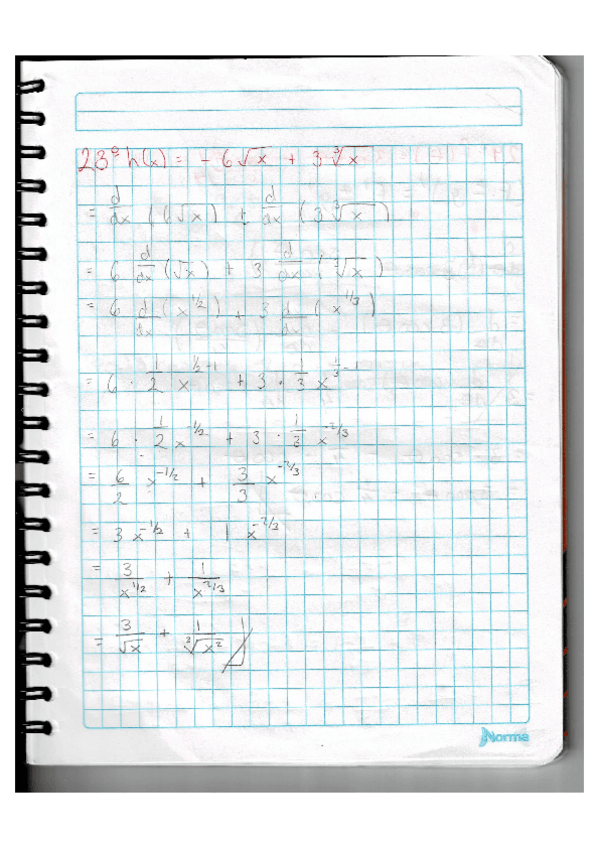 23° h(x) = - 6√x + 3∛x
= d/dx (6√x) + d/dx (3∛x)
= 6 d/dx (√x) + 3 d/dx (∛x)
= 6 d/dx (x^1/2) + 3 d/dx (x^1/3)
= 6 · 1/2 x^1/2-1 + 3 · 1/3 x^1/3-1
= 6 · 1/2 x^-1/2 + 3 · 1/3 x^-2/3
= 6/2 x^-1/2 + 3/3 x^-2/3
= 3x^-1/2 + 1 x^-2/3
= 3/x^1/2 + 1/x^2/3
= 3/√x + 1/∛x²
Norma